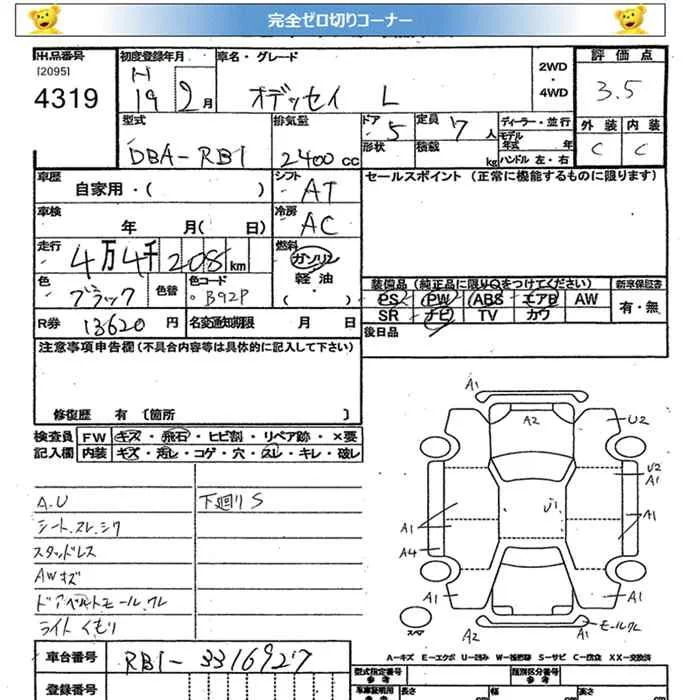 完全ゼロ切りコーナー
出品番号 初度登録年月 車名・グレード 2WD・4WD 評価点
[2095] 4319 H 19 2月 オデッセイ L 3.5
型式 排気量 ドア 5 定員 7人 ディーラー・並行 外装 内装
DBA-RB1 2400cc 形状 積載 kg モデル年式 年 C C
ハンドル 左・右
車歴 自家用・( ) シフト AT セールスポイント(正常に機能するものに限ります)
車検 年 月( 日) 冷房 AC
走行 4万4千208km 燃料 ガソリン
軽油・( )
色 ブラック 色替 色コード B92P 装備品(純正品に限り○をつけてください) 新車保証書
PS PW ABS エアB AW 有・無
R券 13620円 名変通知期限 月 日 SR ナビ TV カワ
後日品
注意事項申告欄(不具合内容等は具体的に記入して下さい)
修復歴 有〔箇所 〕
検査員 FW キズ・飛石・ヒビ割・リペア跡・×要
記入欄 内装 キズ・汚レ・コゲ・穴・スレ・キレ・破レ
A1
A2 U2
U2 A1
A.U 下廻りS
U1
シート.スレ.シワ A1 A1
スタッドレス A4
AWキズ
ドアベルトモール.クレ A1 A1
ライトくもり スペア A2 A1 モールクレ
A-キズ E-エクボ U-凹み W-補修跡 S-サビ C-腐食 XX-交換済
車台番号 RB1-3316927 型式指定番号 参考 類別区分番号 参考
登録番号 車庫証明用 参考 長さ cm 幅 cm 高さ cm